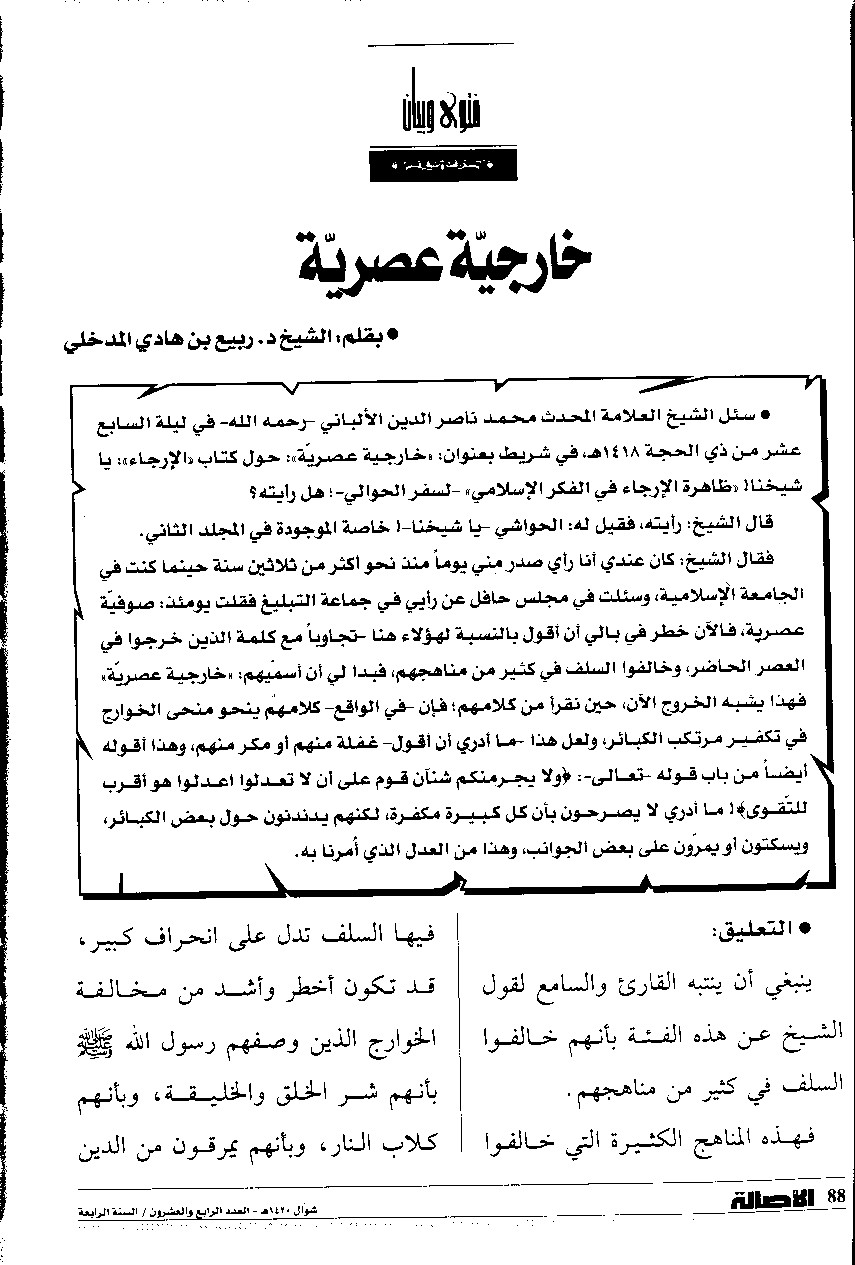 فتوى وبيان
خارجيّة عصريّة
● بقلم: الشيخ د. ربيع بن هادي المدخلي
● سئل الشيخ العلامة المحدث محمد ناصر الدين الألباني -رحمه الله- في ليلة السابع
عشر من ذي الحجة ١٤١٨هـ، في شريط بعنوان: «خارجية عصريّة»: حول كتاب «الإرجاء»: يا
شيخنا! «ظاهرة الإرجاء في الفكر الإسلامي» -لسفر الحوالي-؛ هل رأيته؟
قال الشيخ: رأيته، فقيل له: الحواشي -يا شيخنا-! خاصة الموجودة في المجلد الثاني.
فقال الشيخ: كان عندي أنا رأي صدر مني يوماً منذ نحو أكثر من ثلاثين سنة حينما كنت في
الجامعة الإسلامية، وسئلت في مجلس حافل عن رأيي في جماعة التبليغ فقلت يومئذ: صوفيّة
عصرية، فالآن خطر في بالي أن أقول بالنسبة لهؤلاء هنا -تجاوباً مع كلمة الذين خرجوا في
العصر الحاضر، وخالفوا السلف في كثير من مناهجهم، فبدا لي أن أسميّهم: «خارجية عصريّة»
فهذا يشبه الخروج الآن، حين نقرأ من كلامهم؛ فإن -في الواقع- كلامهم ينحو منحى الخوارج
في تكفير مرتكب الكبائر، ولعل هذا -ما أدري أن أقول- غفلة منهم أو مكر منهم، وهذا أقوله
أيضاً من باب قوله -تعالى-: ﴿ولا يجرمنكم شنآن قوم على أن لا تعدلوا اعدلوا هو أقرب
للتّقوى﴾! ما أدري لا يصرحون بأن كل كبيرة مكفرة، لكنهم يدندنون حول بعض الكبائر،
ويسكتون أو يمرّون على بعض الجوانب، وهذا من العدل الذي أمرنا به.
● التعليق:
ينبغي أن ينتبه القارئ والسامع لقول
الشيخ عن هذه الفئة بأنهم خالفوا
السلف في كثير من مناهجهم.
فهذه المناهج الكثيرة التي خالفوا
فيها السلف تدل على انحراف كبير،
قد تكون أخطر وأشد من مخالفة
الخوارج الذين وصفهم رسول الله ﷺ
بأنهم شر الخلق والخليقة، وبأنهم
كلاب النار، وبأنهم يمرقون من الدين
88 الأصالة
شوال ١٤٢٠هـ - العدد الرابع والعشرون / السنة الرابعة